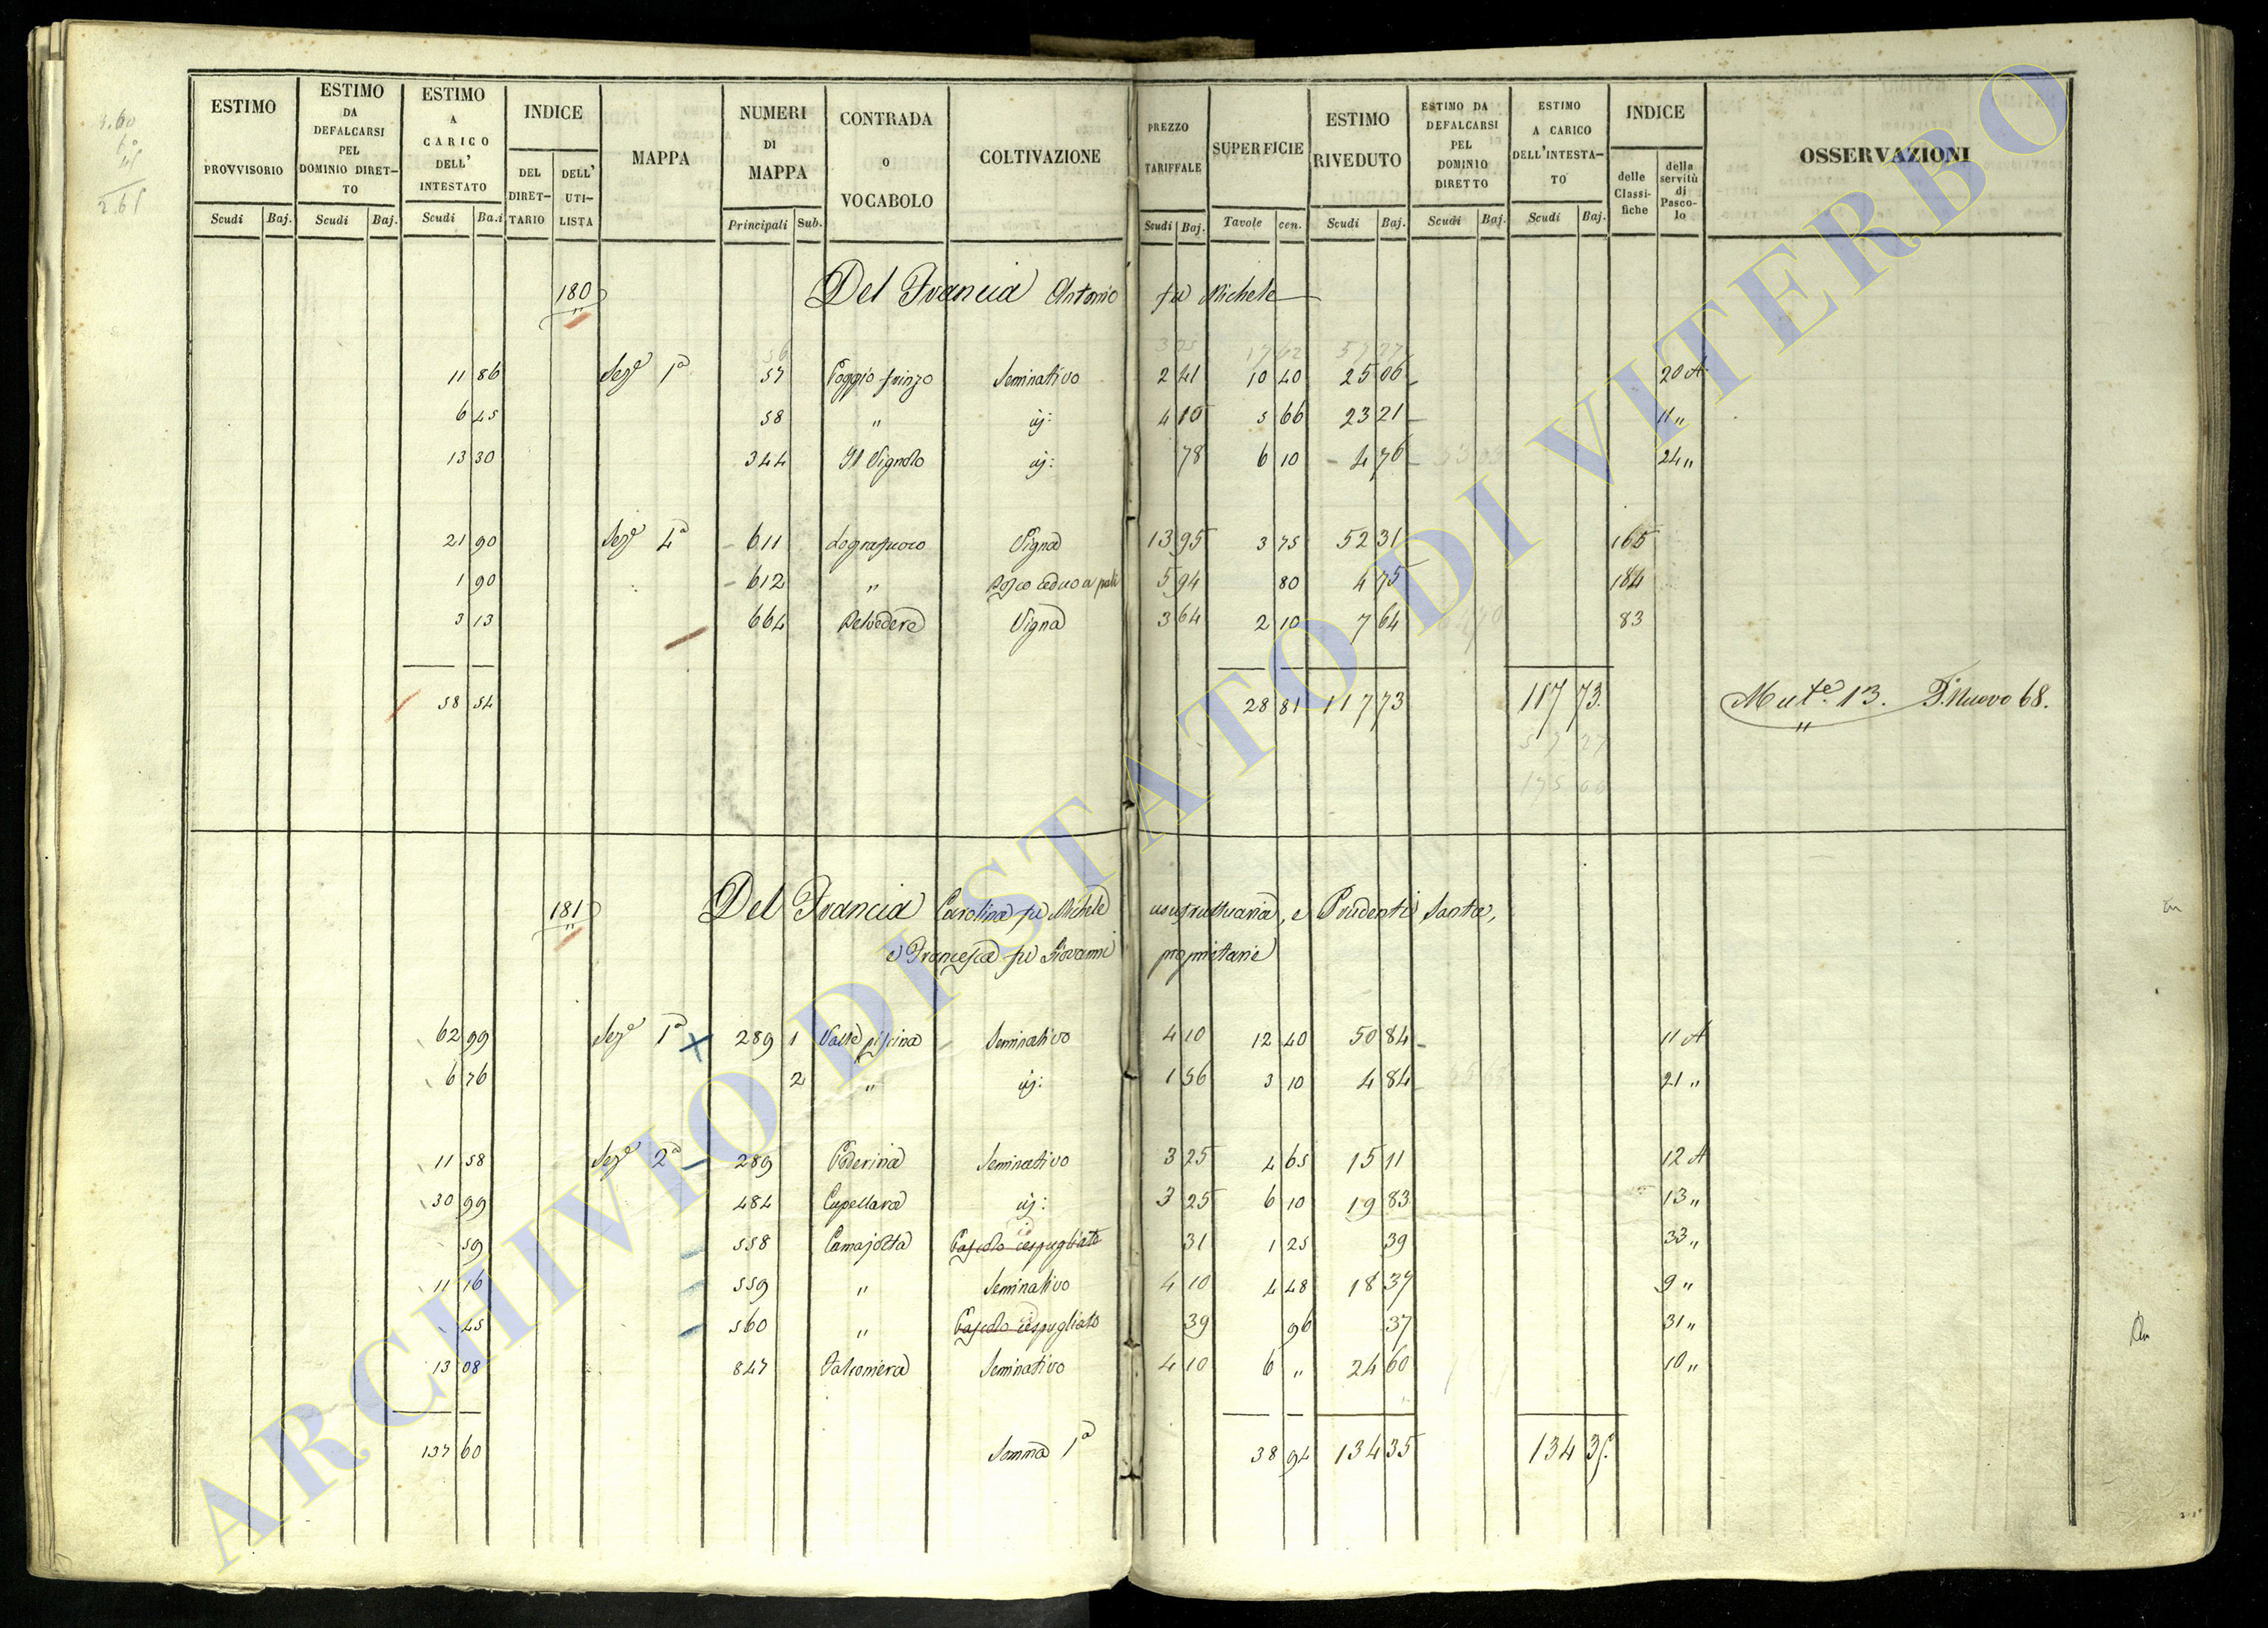 ESTIMO PROVVISORIO Scudi Baj.
ESTIMO DA DEFALCARSI PEL DOMINIO DIRETTO Scudi Baj.
ESTIMO A CARICO DELL' INTESTATO Scudi Ba.i
INDICE DEL DIRETTARIO DELL' UTILISTA
MAPPA
NUMERI DI MAPPA Principali Sub.
CONTRADA o VOCABOLO
COLTIVAZIONE
PREZZO TARIFFALE Scudi Baj.
SUPERFICIE Tavole cen.
ESTIMO RIVEDUTO Scudi Baj.
ESTIMO DA DEFALCARSI PEL DOMINIO DIRETTO Scudi Baj.
ESTIMO A CARICO DELL'INTESTATO Scudi Baj.
INDICE delle Classifiche della servitù di Pascolo
OSSERVAZIONI
180 Del Francia Antonio fu Michele
11 86 Sez.e 1a 57 Poggio Seminativo 2 41 10 40 25 06 20 A
6 45 58 " id: 4 10 5 66 23 21 11 "
13 30 344 Il Vignolo id: 78 6 10 4 76 24 "
21 90 Sez.e 4a 611 Vigna 13 95 3 75 52 31 165
1 90 612 " Bosco ceduo a pali 5 94 80 4 75 184
3 13 664 Belvedere Vigna 3 64 2 10 7 64 83
58 54 28 81 117 73 117 73
Mut.e 13. P. Nuovo 68.
57 27
175 00
181 Del Francia Carolina fu Michele usufruttuaria, e Prudenti Santa,
e Francesca fu Giovanni proprietarie
62 99 Sez.e 1a 289 1 Valle piscina Seminativo 4 10 12 40 50 84 11 A
6 76 2 " id: 1 56 3 10 4 84 21 "
11 58 Sez.e 2a 289 Poderina Seminativo 3 25 4 65 15 11 12 A
30 99 484 Capellara id: 3 25 6 10 19 83 13 "
59 558 Pascolo cespugliato 31 1 25 39 33 "
11 16 559 " Seminativo 4 10 4 48 18 37 9 "
45 560 " Pascolo cespugliato 39 96 37 31 "
13 08 847 Seminativo 4 10 6 " 24 60 10 "
137 60 Somma 1a 38 94 134 35 134 35
ARCHIVIO DI STATO DI VITERBO